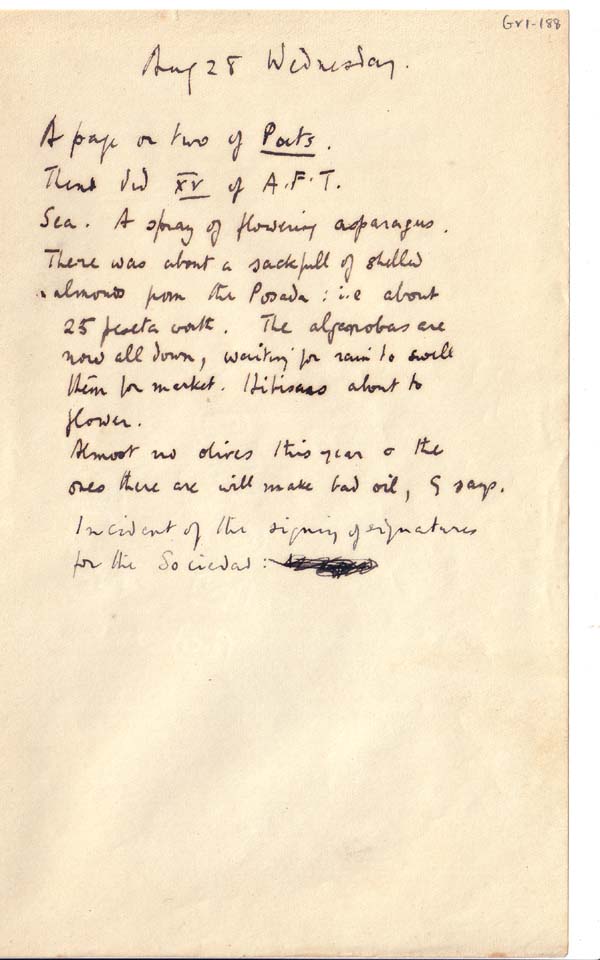 GRI-188
Aug 28 Wednesday.
A page or two of Poets.
Then did XV of A.F.T.
Sea. A spray of flowering asparagus.
There was about a sackfull of shelled
almonds from the Posada: i.e about
25 peseta worth. The algarrobas are
now all down, waiting for rain to swell
them for market. Hibiscus about to
flower.
Almost no olives this year & the
ones there are will make bad oil, G says.
Incident of the signing of signatures
for the Sociedad: